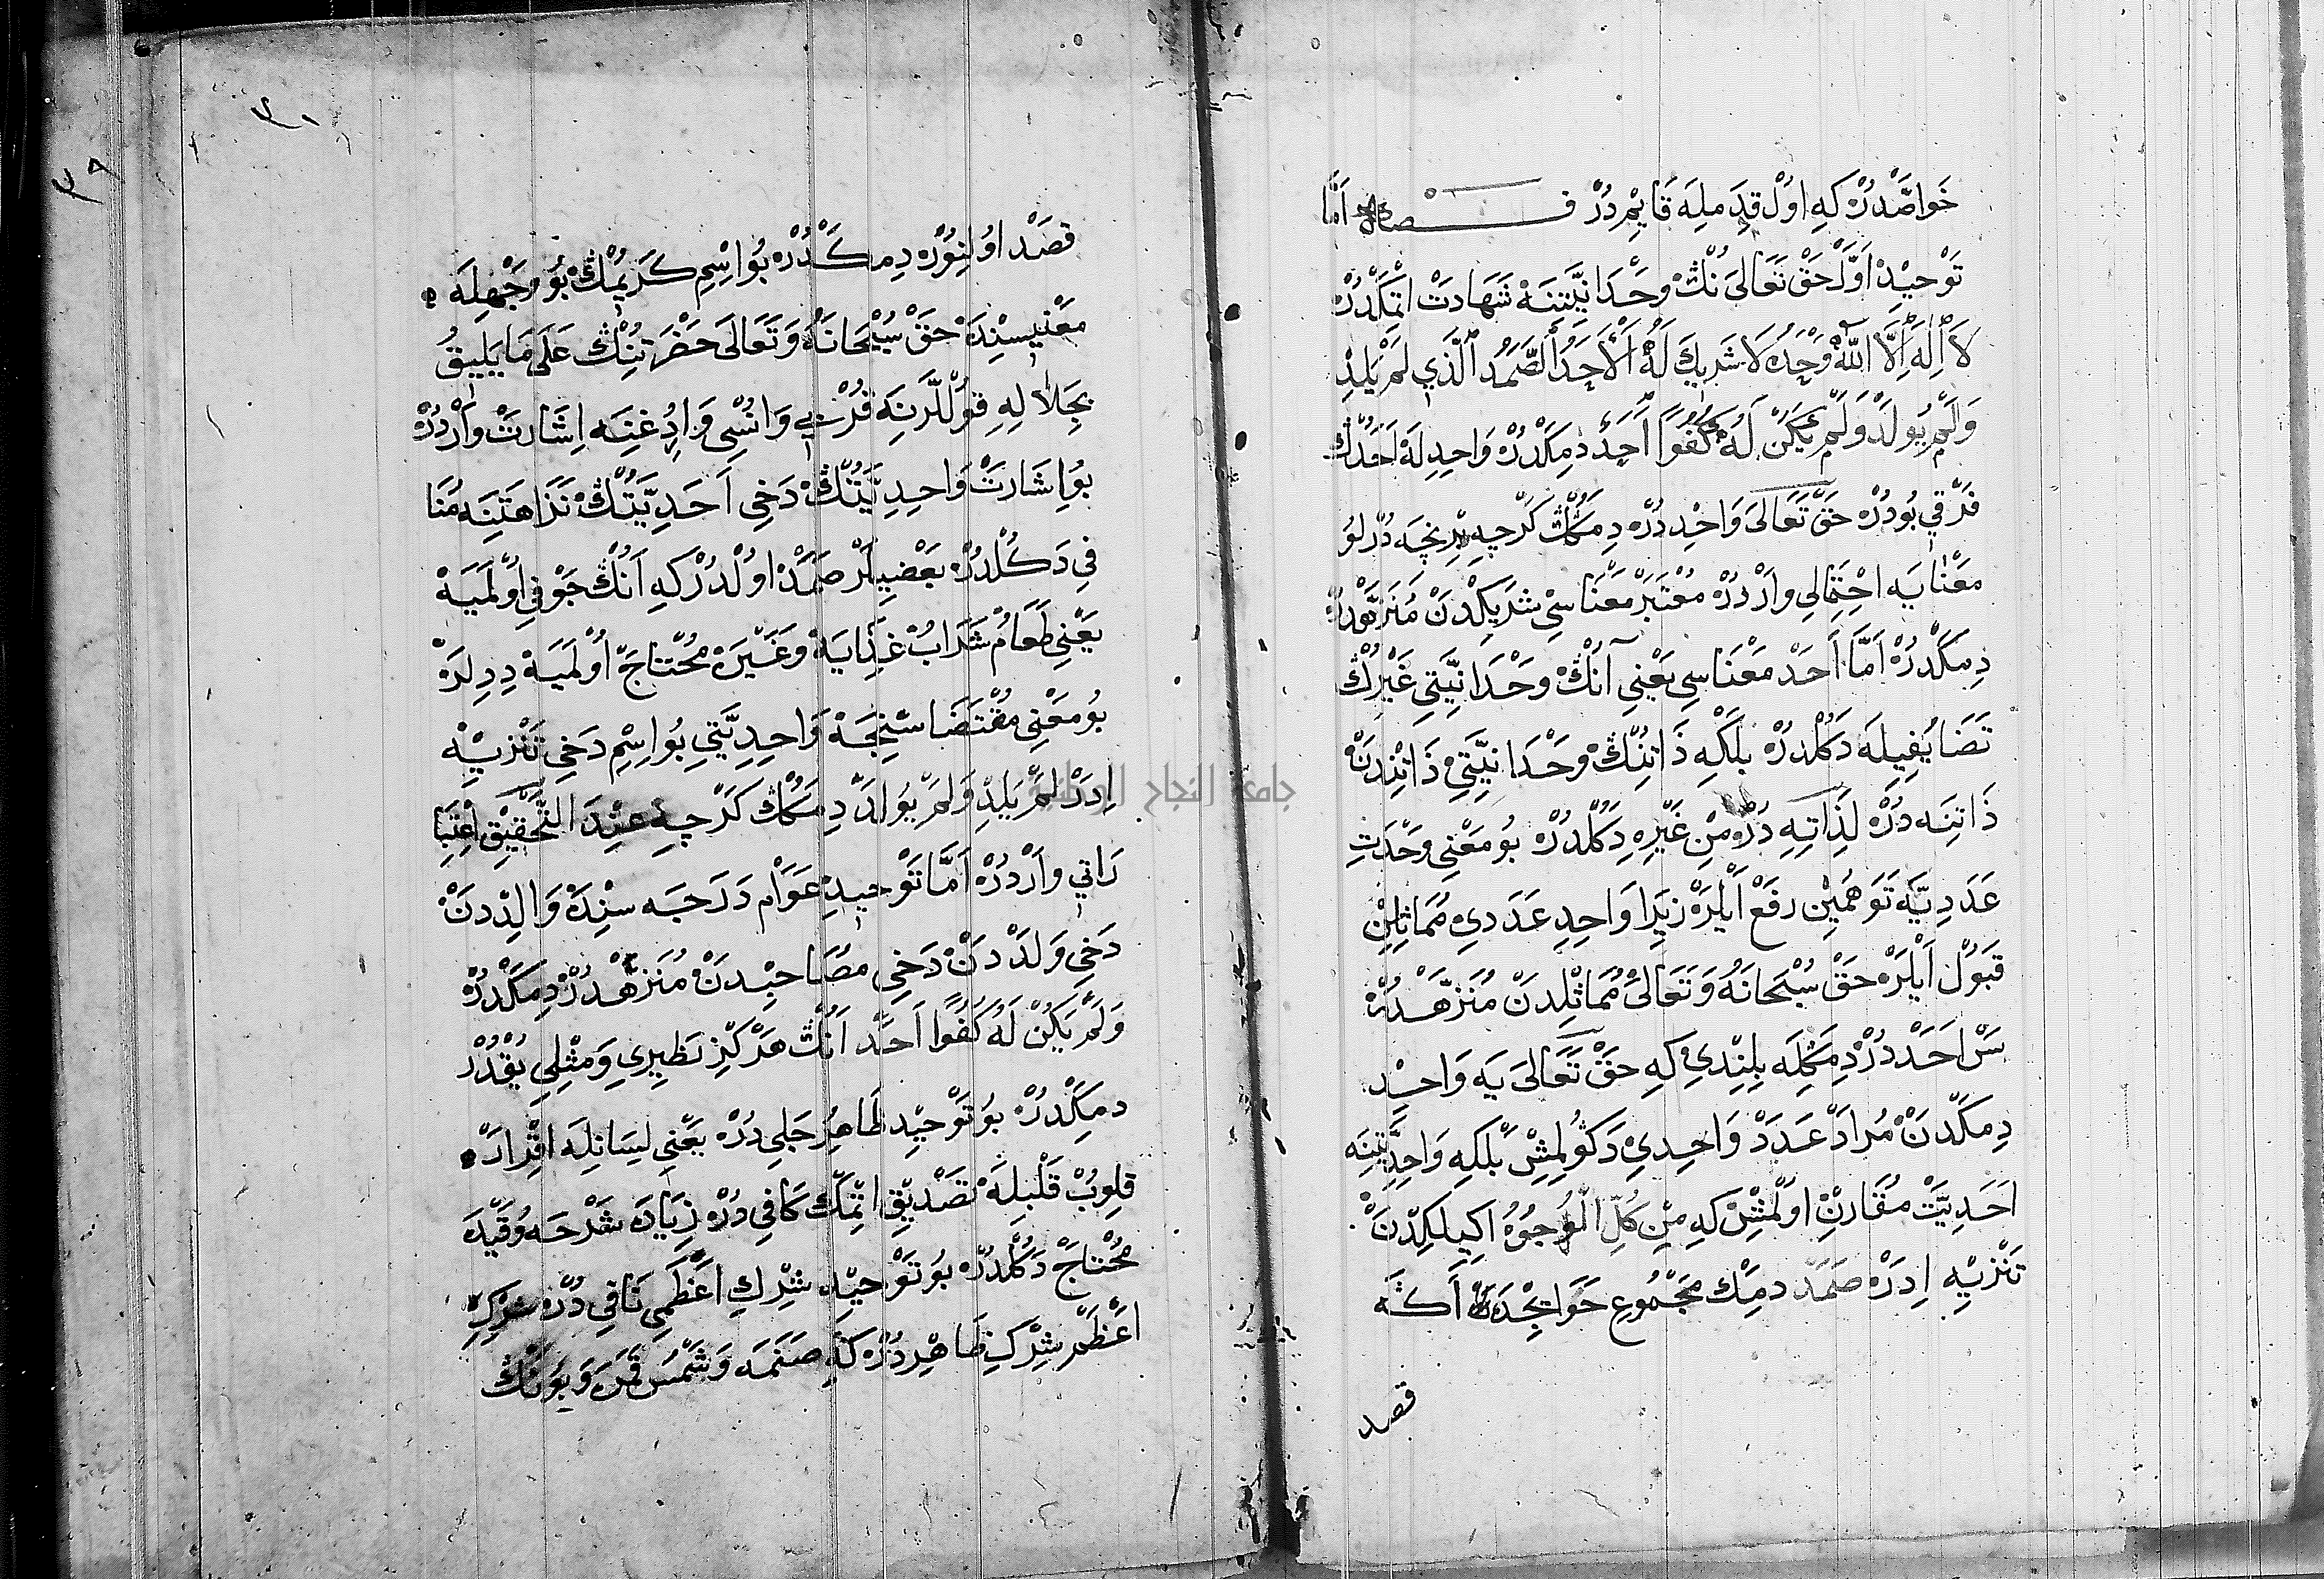 خَواصّدُرْ كَهِ اوُلْ قِدَمِلِهَ قَايِمْدِرُرْ فـــصل اَمَّا
تَوْحِيدْ اَوَّلْ حَقْ تَعَالىَ نُڭْ وَحْدَانِيَّتِنَهْ شَهَادَتْ اتِمَكْدُرْ
لاَ اِلَهَ اِلَّا اللّٰهُ وَحْدَهُ لاَ شَرِيكَ لَهُ الْأَحَدُ الصَّمَدُ الَّذِي لَمْ يَلِدْ
وَلَمْ يُولَدْ وَلَمْ يَكُنْ لَهُ كُفُوًا اَحَدٌ دِمَكْدُرْ وَاحِدِلَهْ اَحَدُڭ
فَرْقِي بُودُرْ حَقْ تَعَالىَ وَاحِدْدُرْ دِمَكُڭْ كَرْچِهِ بِرْنِچَهِ دُرْلُو
مَعْنَايَه احْتِمَالِي وَارْدُرْ مُعْتَبَرْ مَعْنَاسِي شَرِيكِدَنْ مُنَزَّهْدُرْ
دِمَكْدُرْ اَمَّا اَحَدْ مَعْنَاسِي يَعْنِي آنُڭْ وَحْدَانِيَّتِي غَيْرِڭْ
تَضَايُفِيلَه دَكُلْدُرْ بَلْكِهِ ذَاتِنُڭْ وَحْدَانِيَّتِي ذَاتِنْدِنْ
ذَاتِنَه دُرْ لِذَاتِهِ دُرْ مِنْ غَيْرِهِ دِكُلْدُرْ بُو مَعْنِي وَحْدَتِ
عَدَدِيَّه تَوَهُّمِينْ رَفْعْ اَيْلَرْ زِيَرا وَاحِدِ عَدَدِي مُمَاثِلِنْ
قَبُولْ اَيْلَرْ حَقْ سُبْحَانَهُ وَتَعَالىَ مُمَاثِلِدَنْ مُنَزَّهْدُرْ
سَنْ اَحَدْدُرْ دِمَكِلَه بِلِنْدِي كِهِ حَقْ تَعَالىَ يَه وَاحِدْ
دِمَكْدَنْ مُرَادْ عَدَدْ وَاحِدِي دَكُولِمِشْ بَلْكِهِ وَاحِدِيَّتِنَه
اَحَدِيَّتْ مُقَارِنْ اوُلْمِشْ كِهِ مِنْ كُلِّ الْوُجُوهُ اكِيلِكِدَنْ
تَنْزِيهِ اِدَرْ صَمَدْ دِمَكْ مَجْمُوعِ حَوَايِجْدَنْ اَكَه
قصد
قَصَدْ اوُلِنُورْ دِمَكْدُرْ بُو اِسْمِ كَرِيمُڭْ بُو وَجْهِلَه
مَعْنِيسِنْدَهْ حَقْ سُبْحَانَهُ وَتَعَالىَ حَضْرَتِنُڭْ عَلَى مَا يَلِيقُ
بِجَلَالِهِ قُولْلَرِنَه قُرْبِي وَانْسِي وَارِدُغِنَه اِشَارَتْ وَارْدُرْ
بُو اِشَارَتْ وَاحِدِيَّتُنْڭْ دَخِي اَحَدِيَّتُنْڭْ نَزَاهَتِنَه مُنَا
فِي دَكُلْدُرْ بَعْضِيلَرْ صَمَدْ اوُلْدُرْ كِهِ اَنُڭْ جَوْفِي اوُلْمَيَه
يَعْنِي طَعَامُ شَرَابُ غِذَايَه وَغَيْرَه مُحْتَاجْ اوُلْمَيَه دِدِلَرْ
بُو مَعْنِي مُقْتَضَاسِنْجَه وَاحِدِيَّتِي بُو اِسِمْ دَخِي تَنْزِيهْ
اِدَرْ لَمْ يَلِدْ وَلَمْ يُولَدْ دِمَكُڭْ كَرْچِهِ عِنْدَ التَّحْقِيقْ اعْتِبَا
رَاتِي وَارْدُرْ اَمَّا تَوْحِيدِ عَوَامْ دَرَجَه سِنْدَه وَالِدْدَنْ
دَخِي وَلَدْدَنْ دَخِي مُصَاحِبْدَنْ مُنَزَّهْدُرْ دِمَكْدُرْ
وَلَمْ يَكُنْ لَهُ كُفُوًا اَحَدْ اَنُڭْ هَرْكِزْ نَظِيرِي وَمِثْلِي يُقْدُرْ
دِمَكْدُرْ بُو تَوْحِيدْ ظَاهِرُ جَلِي دُرْ يَعْنِي لِسَانِلَه اقْرَارْ
قِلُوبْ قَلْبِلَه تَصْدِيقْ اتِمَكْ كَافِي دُرْ زِيَادَه شَرْحَه وُقَيْدَه
مُحْتَاجْ دَكُلْدُرْ بُو تَوْحِيدْ شِرْكِ اَعْظَمِي نَافِي دُرْ شِرْكِ
اَعْظَمْ شِرْكِ ظَاهِرْدُرْ كَه صَنَمَه وَشَمْسَ قَمَرَه وَبُونُڭْ